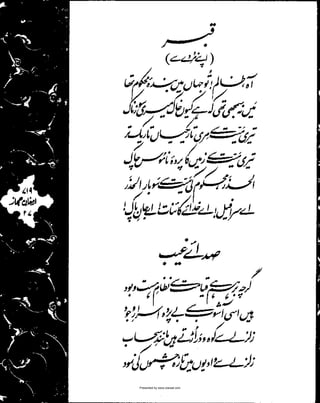 قبر
(اپنے مُردے سے)
آہ ظالم! تُو جہاں میں بندۂ محکوم تھا
میں نہ سمجھی تھی کہ ہے کیوں خاک میری سوز ناک
تیری میّت سے مری تاریکیاں تاریک تر
تیری میّت سے زمیں کا پردۂ ناموس چاک
الحذر، محکوم کی میّت سے سو بار الحذر
اے سرافیل! اے خدائے کائنات! اے جانِ پاک!
صدائے غیب
گرچہ برہم ہے قیامت سے نظامِ ہست و بود
ہیں اسی آشوب سے بے پردہ اسرارِ وجود
زلزلے سے کوہ و در اُڑتے ہیں مانندِ سحاب
زلزلے سے وادیوں میں تازہ چشموں کی نمود
۷۱۹
ارمغانِ حجاز
۲۷